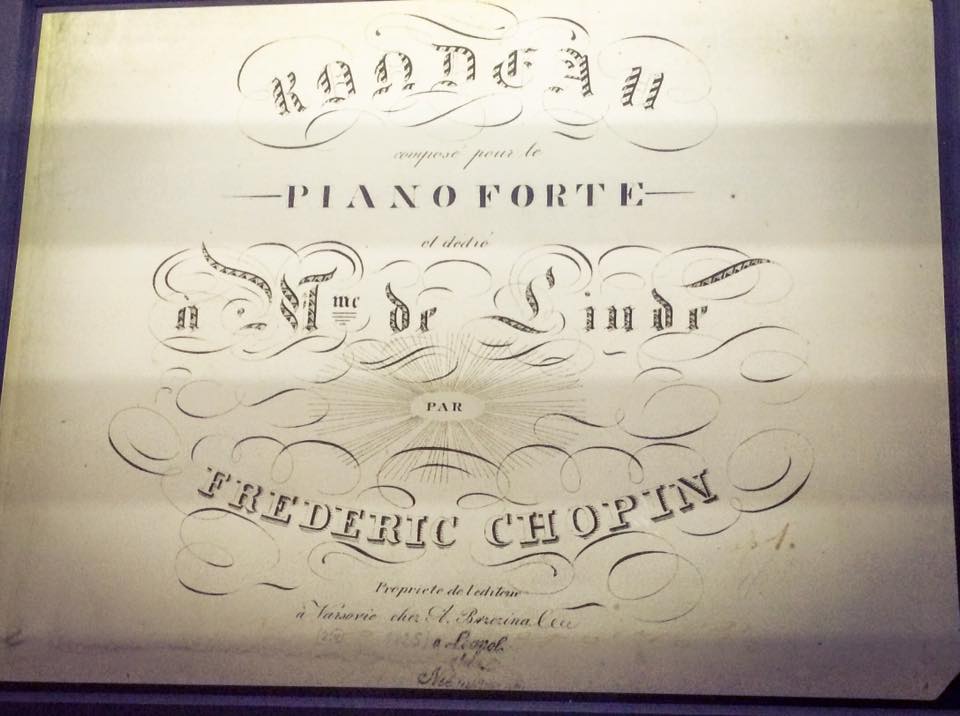 RONDEAU
composé pour le
PIANO FORTE
et dedié
à Mme de Linde
PAR
FREDERIC CHOPIN
Propriete de l'editeur
à Varsovie chez A. Brzezina
a Leopol